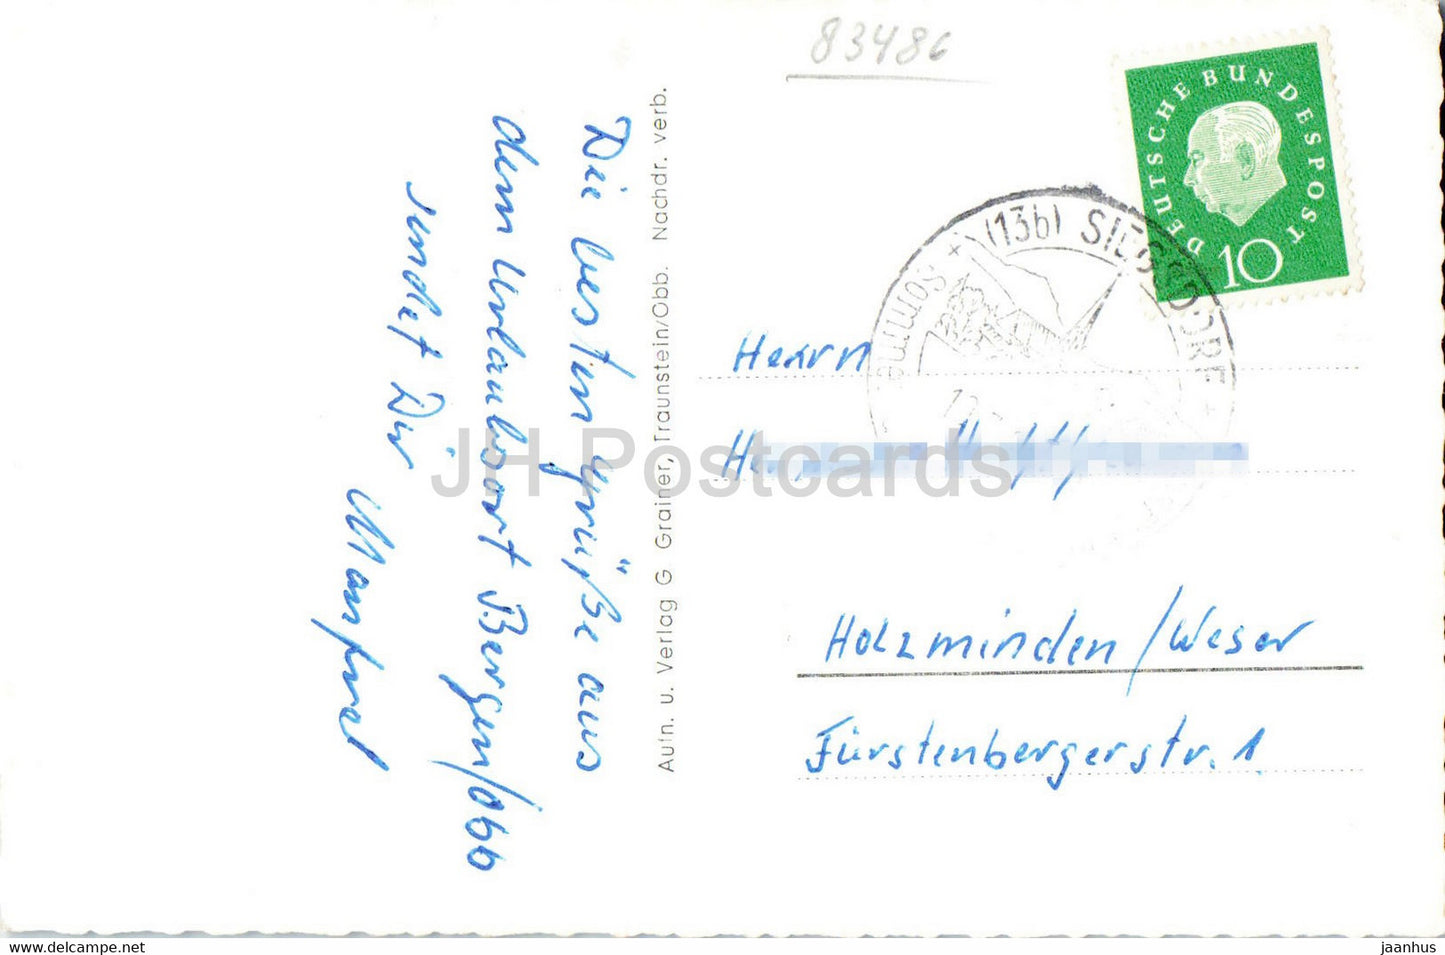 83486
DEUTSCHE BUNDESPOST
10
(13b) SIEGSDORF
Somme
Die besten Grüße aus
dem Urlaubsort Bergen/Obb
sendet Dir
Manfred
Aufn. u. Verlag G. Grainer, Traunstein/Obb. Nachdr. verb.
Herrn
Holzminden/Weser
Fürstenbergerstr. 1
JH Postcards
hip-post.com
jaanhus